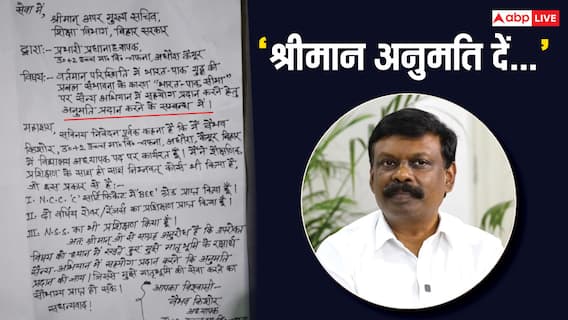 सेवा में,
श्रीमान् अपर मुख्य सचिव,
शिक्षा विभाग, बिहार सरकार
द्वारा:- प्रभारी प्रधानाध्यापक,
विषय:- वर्तमान परिस्थिति में भारत-पाक युद्ध की
प्रबल संभावना के कारण "भारत-पाक सीमा"
पर सैन्य अभियान में सहयोग प्रदान करने हेतु
अनुमति प्रदान करने के सम्बन्ध में।
महाशय, सविनय निवेदन पूर्वक कहना है कि मैं
किशोर, कैमूर बिहार
में विद्यालय अध्यापक पद पर कार्यरत हूँ। मैंने
प्रशिक्षण के साथ ही साथ निम्नवत् कोर्स भी किया है,
जो इस प्रकार से है:-
I. N.C.C. 'C' सर्टिफिकेट में 'BEE' ग्रेड प्राप्त किया है।
II. दो वर्षीय रोवर/रेंजर्स का प्रशिक्षण प्राप्त किया है।
III. N.S.S. का भी प्रशिक्षण किया है।
अतः श्रीमान् जी से सादर अनुरोध है कि उपरोक्त
विषय को ध्यान में रखते हुए मुझे मातृभूमि के रक्षार्थ
सैन्य-अभियान में सहयोग प्रदान करने कि अनुमति
प्रदान की जाय। जिससे मुझे मातृभूमि की सेवा करने का
सौभाग्य प्राप्त हो सके।
सधन्यवाद!
आपका विश्वासी
किशोर
अध्यापक
‘श्रीमान अनुमति दें...’
abp LIVE